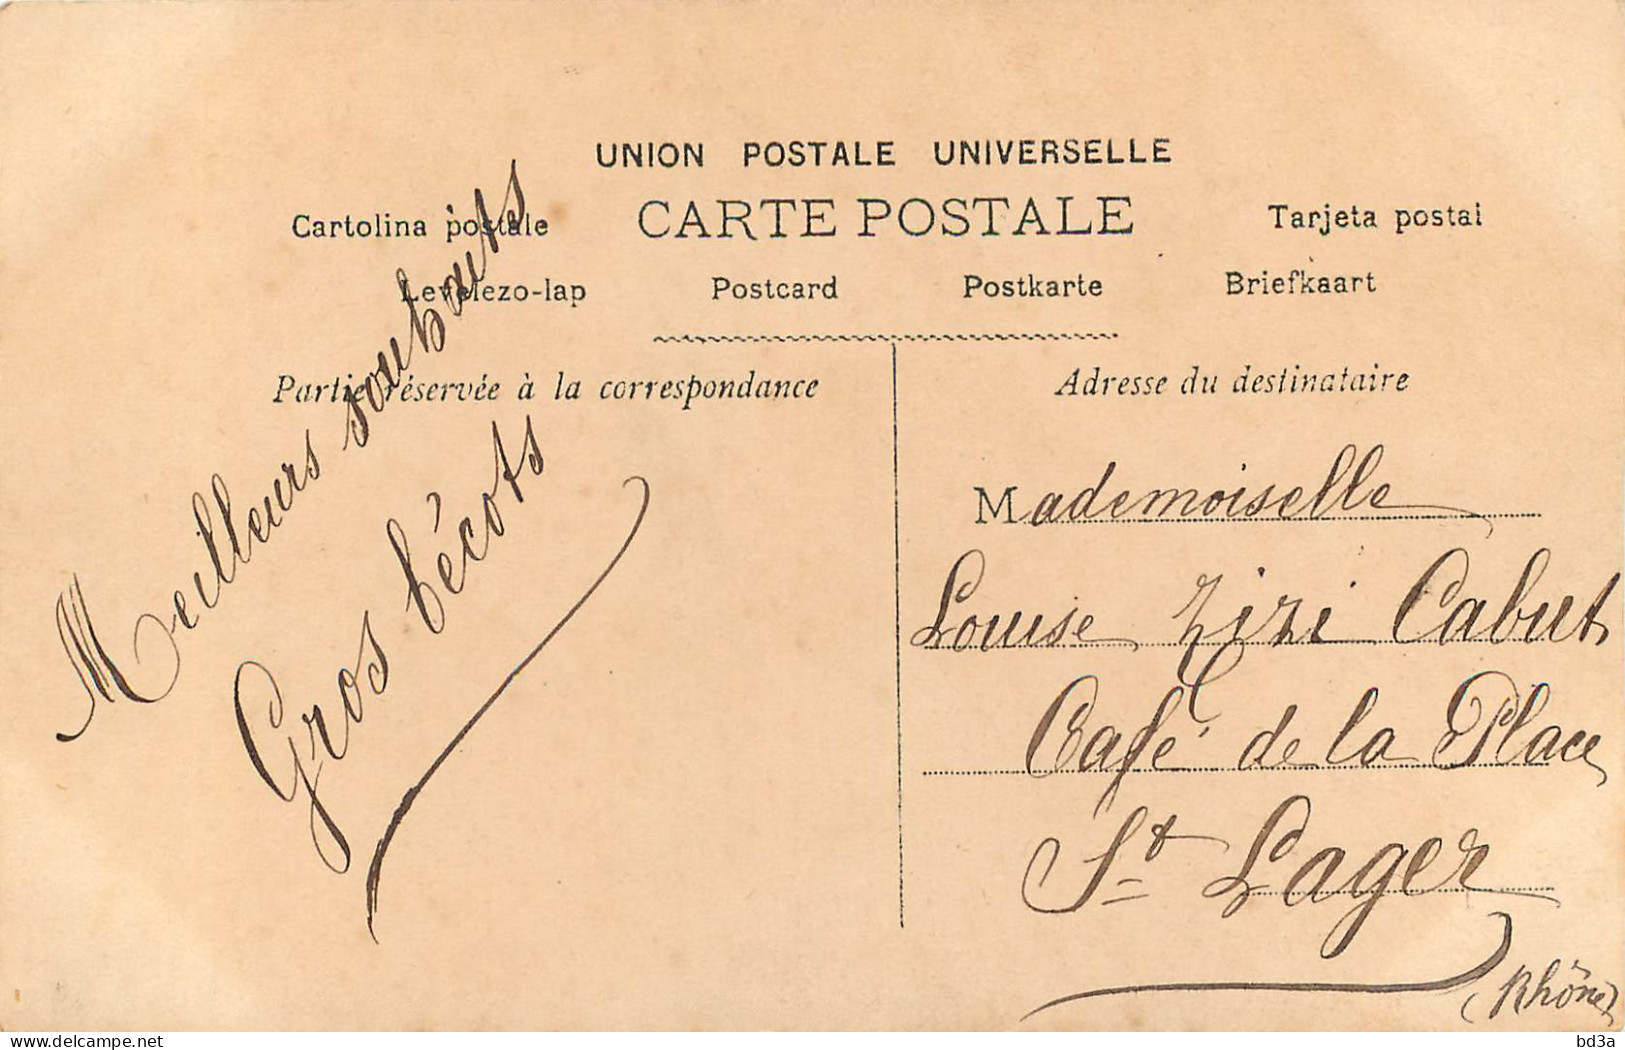 UNION POSTALE UNIVERSELLE
CARTE POSTALE
Cartolina postale
Tarjeta postal
Levelezo-lap
Postcard
Postkarte
Briefkaart
Partie réservée à la correspondance
Meilleurs souhaits
Gros bécots
Adresse du destinataire
Mademoiselle
Louise Zizi Cabut
Café de la Place
St Lager
(Rhône)
delcampe.net
bd3a